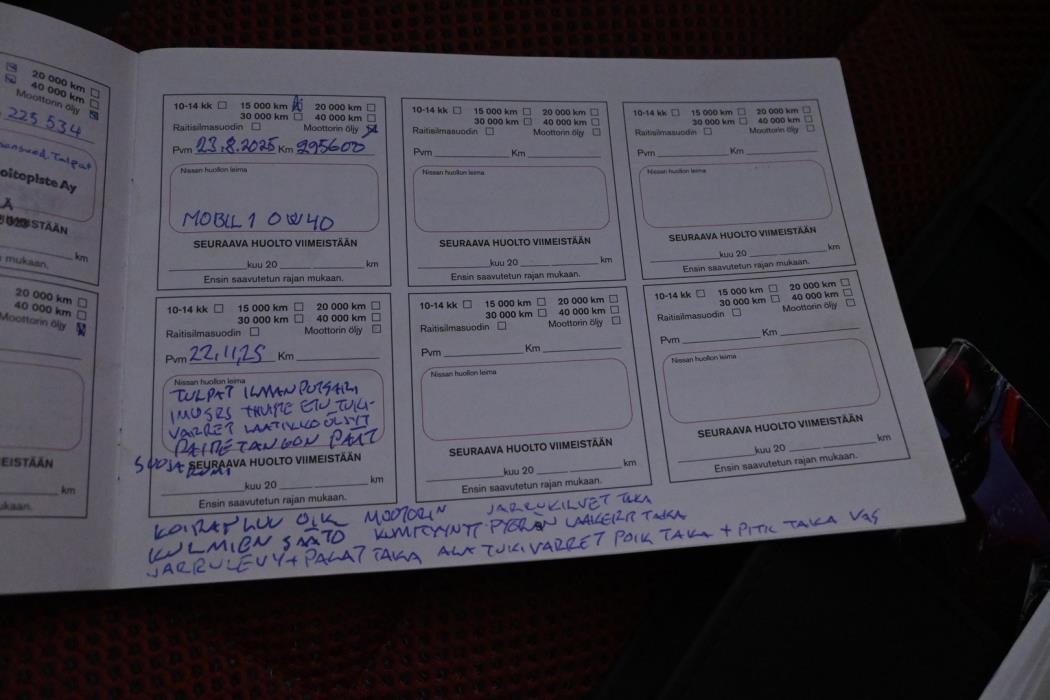 20 000 km
40 000 km
Moottorin öljy
225 534
Tulpat
oitopiste Ay
km
20 000 km
40 000 km
Moottorin öljy
EISTÄÄN
km
ukaan.
10-14 kk 15 000 km 20 000 km
30 000 km 40 000 km
Raitisilmasuodin Moottorin öljy
Pvm 23.8.2025 Km 295600
Nissan huollon leima
MOBIL 1 0W40
SEURAAVA HUOLTO VIIMEISTÄÄN
kuu 20 km
Ensin saavutetun rajan mukaan.
10-14 kk 15 000 km 20 000 km
30 000 km 40 000 km
Raitisilmasuodin Moottorin öljy
Pvm Km
Nissan huollon leima
SEURAAVA HUOLTO VIIMEISTÄÄN
kuu 20 km
Ensin saavutetun rajan mukaan.
10-14 kk 15 000 km 20 000 km
30 000 km 40 000 km
Raitisilmasuodin Moottorin öljy
Pvm Km
Nissan huollon leima
SEURAAVA HUOLTO VIIMEISTÄÄN
kuu 20 km
Ensin saavutetun rajan mukaan.
10-14 kk 15 000 km 20 000 km
30 000 km 40 000 km
Raitisilmasuodin Moottorin öljy
Pvm 22.11.25 Km
Nissan huollon leima
TULPAT ILMANPUTSARI
ETU TUKI-
VARRET LAATIKKO ÖLJYT
RAIDETANGON PÄÄT
SUOJA KUMI
SEURAAVA HUOLTO VIIMEISTÄÄN
kuu 20 km
Ensin saavutetun rajan mukaan.
10-14 kk 15 000 km 20 000 km
30 000 km 40 000 km
Raitisilmasuodin Moottorin öljy
Pvm Km
Nissan huollon leima
SEURAAVA HUOLTO VIIMEISTÄÄN
kuu 20 km
Ensin saavutetun rajan mukaan.
10-14 kk 15 000 km 20 000 km
30 000 km 40 000 km
Raitisilmasuodin Moottorin öljy
Pvm Km
Nissan huollon leima
SEURAAVA HUOLTO VIIMEISTÄÄN
kuu 20 km
Ensin saavutetun rajan mukaan.
KOIRANLUU OIK MOOTORIN JARRUKILVET TAKA
KULMIEN SÄÄTÖ KUMITYYNYT PYÖRÄN LAAKERIT TAKA
JARRULEVY+PALAT TAKA ALA TUKIVARRET POIK TAKA + PITK TAKA VAS